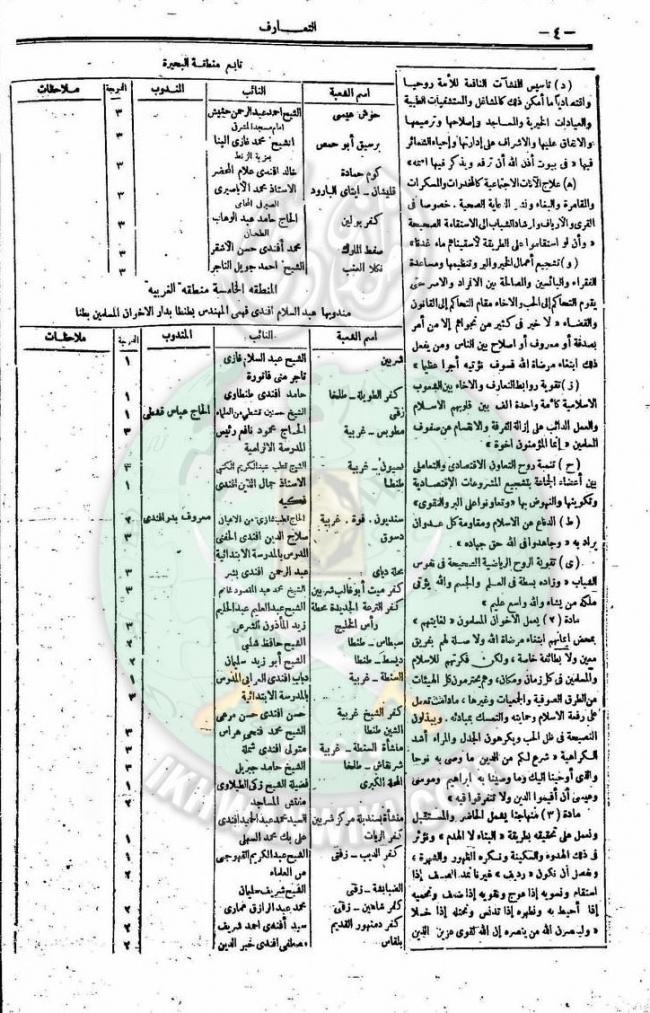 — ٤ —
التعارف
(د) تأسيس المنشآت النافعة للأمة روحيا
واقتصاديا ما أمكن ذلك كالمشاغل والمستشفيات الطبية
والعيادات الخيرية والمساجد وإصلاحها وترميمها
والانفاق عليها والاشراف على إدارتها وإحياء الشعائر
فيها « في بيوت أذن الله أن ترفع ويذكر فيها اسمه »
(ه) علاج الآفات الاجتماعية كالمخدرات والمسكرات
والمقامرة والبغاء ونشر الدعاية الصحية . خصوصا فى
القرى والأرياف وارشاد الشباب الى الاستقامة الصحيحة
« وأن لو استقاموا على الطريقة لأسقيناهم ماء غدقا »
(و) تشجيع أعمال الخير والبر وتنظيمها ومساعدة
الفقراء والبائسين والمصالحة بين الافراد والاسر حتى
يقوم التحاكم إلى الحب والاخاء مقام التحاكم إلى القانون
والقضاء « لا خير فى كثير من نجواهم إلا من أمر
بصدقة أو معروف أو اصلاح بين الناس ومن يفعل
ذلك ابتغاء مرضاة الله فسوف نؤتيه أجرا عظيما »
(ز) تقوية روابط التعارف والاخاء بين الشعوب
الاسلامية كأمة واحدة الف بين قلوبهم الاسلام
والعمل الدائب على إزالة الفرقة والانقسام من صفوف
المسلمين « إنما المؤمنون اخوة »
(ح) تنمية روح التعاون الاقتصادى والتعاملى
بين أعضاء الجماعة بتشجيع المشروعات الإقتصادية
وتكوينها والنهوض بها « وتعاونوا على البر والتقوى »
(ط) الدفاع عن الاسلام ومقاومة كل عدوان
يراد به « وجاهدوا فى الله حق جهاده »
(ى) تقوية الروح الرياضية الصحيحة فى نفوس
الشباب « وزاده بسطة فى العلم والجسم والله يؤتى
ملكه من يشاء والله واسع عليم »
مادة (٢) يعمل الأخوان المسلمون « لغايتهم »
بمحض إيمانهم ابتغاء مرضاة الله ولا صلة لهم بفريق
معين ولا بطائفة خاصة ، ولكن فكرتهم للاسلام
والمسلمين فى كل زمان ومكان ، وهم يحترمون كل الهيئات
من الطرق الصوفية والجمعيات وغيرها ، مادامت تعمل
على رفعة الاسلام وحمايته والتمسك بمبادئه . ويبذلون
النصيحة فى ظل الحب ويكرهون الجدل والمراء أشد
الكراهية « شرع لكم من الدين ما وصى به نوحا
والذى أوحينا اليك وما وصينا به ابراهيم وموسى
وعيسى أن أقيموا الدين ولا تتفرقوا فيه »
مادة (٣) منهاجنا يشمل الحاضر والمستقبل
ونعمل على تحقيقه بطريقة « البناء لا الهدم » ونؤثر
فى ذلك الهدوء والسكينة ونكره الظهور والشهرة ،
ونفضل أن نكون « رديف » غيرنا نمد الصف إذا
استقام ونسويه إذا اعوج ونقويه إذا ضعف ونحميه
إذا أحيط به ونطهره إذا تدنس ونحتله إذا خلا
« ولينصرن الله من ينصره إن الله لقوى عزيز الذين
تابع منطقة البحيرة
اسم الشعبة النائب المندوب الدرجة ملاحظات
حوش عيسى الشيخ احمد عبد الرحمن حشيش ٣
امام مسجد المشرق
برسيق أبو حمص الشيخ محمد غازى البنا ٣
بعزبة الزنط
كوم حمادة خالد افندى علام المحضر ٣
قليشان - ايتاى البارود الاستاذ محمد الاباصيرى ٣
الصيرفى المحامى
كفر بولين الحاج حامد عبد الوهاب ٣
الطحان
صفط الملوك محمد أفندى حسن الأشقر ٣
نكلا العنب الشيخ احمد جويل التاجر ٣
المنطقه الخامسة منطقه "الغربيه"
مندوبها عبد السلام افندى فهمى المهندس بطنطا بدار الاخوان المسلمين بطنا
اسم الشعبة النائب المندوب الدرجة ملاحظات
شربين الشيخ عبد السلام غازى ١
تاجر منى فاتورة
كفر الطويلة - طلخا حامد افندى طنطاوى ١
زفتى الشيخ حسنين قشطى من العلماء الحاج عباس قشطى ١
مطوبس - غربية الحاج محمود نافع رئيس ٣
المدرسة الالزامية
بسيون - غربية الشيخ قطب عبد الكريم الكنى ٣
طنطا الاستاذ جمال الدين افندى ١
فكيه
سنديون . فوة . غربية معروف بدر افندى ٢
دسوق صلاح الدين افندى الحفنى ٣
المدرس بالمدرسة الابتدائية
محلة دياى عبد الرحمن افندى بشر ٣
كفر ميت أبو غالب شربين الشيخ محمد عبد المقصود غانم ٣
كفر الترعة الجديدة محطة الشيخ عبد العليم عبد الحليم
رأس الخليج زيد المأذون الشرعى ٢
سبطاس - طنطا الشيخ حافظ شلبى ٢
دبلسط - طنطا الشيخ أبو زيد سلمان ٢
السنطة - غربية دياب افندى العرابى المدرس
بالمدرسة الابتدائية ٣
كفر الشيخ غربية حسن افندى حسن مرعى
الشين طنطا الشيخ محمد فتحى هراس ٣
منشأة السنطة - غربية متولى افندى نحلة ٣
شرنقاش - طلخا الشيخ حامد جبريل ٣
المحلة الكبرى فضيلة الشيخ زكى الطبلاوى ١
مفتش المساجد
منشأة بسنديلة مركز شربين السيد محمد عبد الحميد افندى ٢
كفر الزيات على بك محمد السهلى ١
كفر الديب - زفتى الشيخ عبد الكريم القهوجى ١
من العلماء
الضبابشة - زفتى الشيخ شريف سلمان ٢
كفر شاهين - زفتى محمد عبد الرازق عمارى ٢
كفر دمنهور القديم سيد أفندى احمد شريف ٢
بلقاس مصطفى افندى خير الدين ٢
IKHWANWIKI.COM